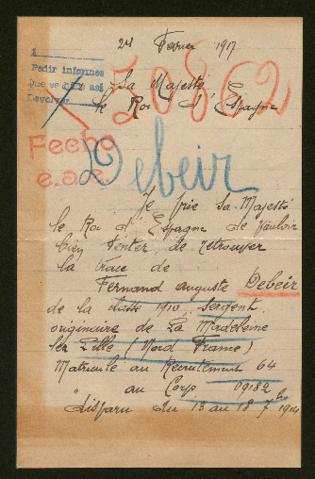 24 Fevrier 1917
1
Pedir informes
Devolver
70862
Sa Majesté
le Roi d'Espagne
Fecho
e.a.c.
Debeir
Je prie Sa Majesté
le Roi d'Espagne de vouloir
bien tenter de retrouver
la trace de
Fernand Auguste Debeir
de la classe 1910 Sergent
originaire de La Madeleine
lez Lille (Nord France)
Matricule au Recrutement 64
" au Corps 09182
disparu du 13 au 18 7bre 1914